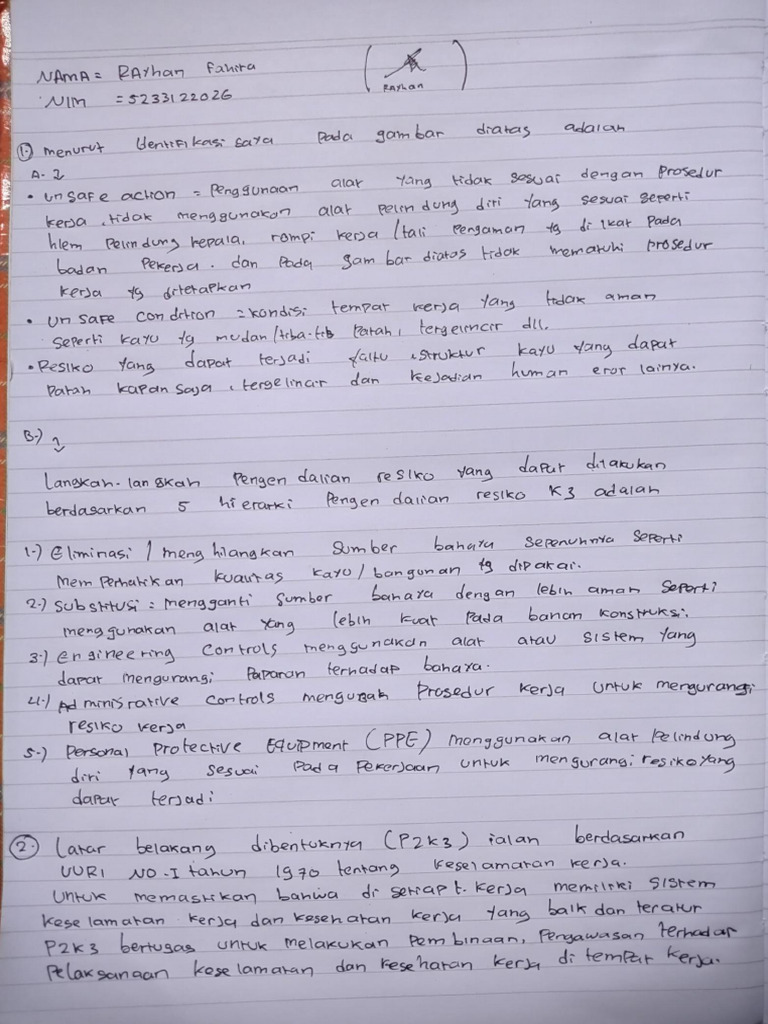 NAMA = RAyhan Fahira
NIM = 5233122026
RAYhan
1. menurut Identifikasi saya pada gambar diatas adalah
A.
• unsafe action = Penggunaan alat yang tidak sesuai dengan Prosedur
kerja, tidak menggunakan alat pelindung diri yang sesuai seperti
hlem Pelindung kepala, rompi kerja / tali Pengaman yg di ikat pada
badan Pekerja. dan pada gambar diatas tidak mematuhi prosedur
kerja yg ditetapkan
• unsafe condition = kondisi tempat kerja yang tidak aman
seperti kayu yg mudah / tiba-tib Patah, tergelincir dll.
• Resiko yang dapat terjadi yaitu, struktur kayu yang dapat
Patah kapan saja, tergelincir dan kejadian human eror lainya.
B.)
Langkah-langkah Pengendalian resiko yang dapat dilakukan
berdasarkan 5 hierarki Pengendalian resiko K3 adalah
1.) Eliminasi / menghilangkan Sumber bahaya sepenuhnya seperti
memperhatikan kualitas kayu / bangunan yg dipakai.
2.) Substitusi = mengganti sumber bahaya dengan lebih aman seperti
menggunakan alat yang lebih kuat pada bahan konstruksi.
3.) Engineering controls menggunakan alat atau sistem yang
dapat mengurangi Paparan terhadap bahaya.
4.) Administrative controls mengubah Prosedur kerja untuk mengurangi
resiko kerja
5.) Personal Protective EQuipment (PPE) menggunakan alat Pelindung
diri yang sesuai pada Pekerjaan untuk mengurangi resiko yang
dapat terjadi
2. Latar belakang dibentuknya (P2K3) ialah berdasarkan
UURI NO-I tahun 1970 tentang keselamatan kerja.
Untuk memastikan bahwa di setiap t. kerja memiliki sistem
keselamatan kerja dan kesehatan kerja yang baik dan teratur
P2K3 bertugas untuk melakukan Pembinaan, Pengawasan terhadap
Pelaksanaan keselamatan dan kesehatan kerja di tempat kerja.